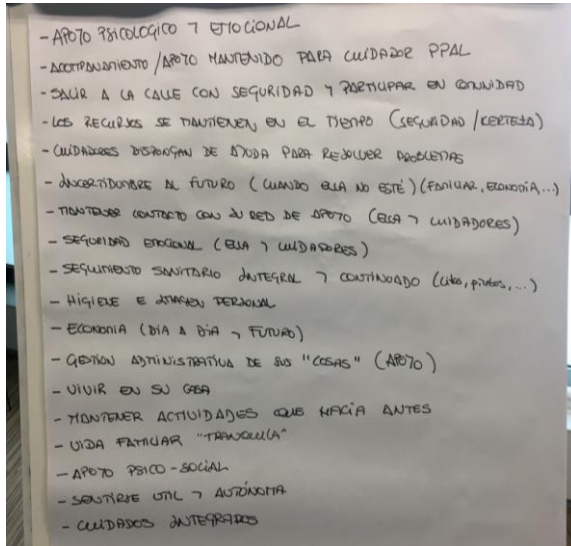 - APOYO PSICOLOGICO Y EMOCIONAL
- ACOMPAÑAMIENTO / APOYO MANTENIDO PARA CUIDADOR PPAL
- SALIR A LA CALLE CON SEGURIDAD Y PARTICIPAR EN COMUNIDAD
- LOS RECURSOS SE MANTIENEN EN EL TIEMPO (SEGURIDAD / CERTEZA)
- CUIDADORES DISPONGAN DE AYUDA PARA RESOLVER PROBLEMAS
- INCERTIDUMBRE AL FUTURO (CUANDO ELLA NO ESTÉ) (FAMILIAR, ECONOMÍA...)
- MANTENER CONTACTO CON SU RED DE APOYO (ELLA Y CUIDADORES)
- SEGURIDAD EMOCIONAL (ELLA Y CUIDADORES)
- SEGUIMIENTO SANITARIO INTEGRAL Y CONTINUADO (citas, ...)
- HIGIENE E IMAGEN PERSONAL
- ECONOMIA (DIA A DIA Y FUTURO)
- GESTION ADMINISTRATIVA DE SUS "COSAS" (APOYO)
- VIVIR EN SU CASA
- MANTENER ACTIVIDADES QUE HACIA ANTES
- VIDA FAMILIAR "TRANQUILA"
- APOYO PSICO-SOCIAL
- SENTIRSE UTIL Y AUTÓNOMA
- CUIDADOS INTEGRADOS